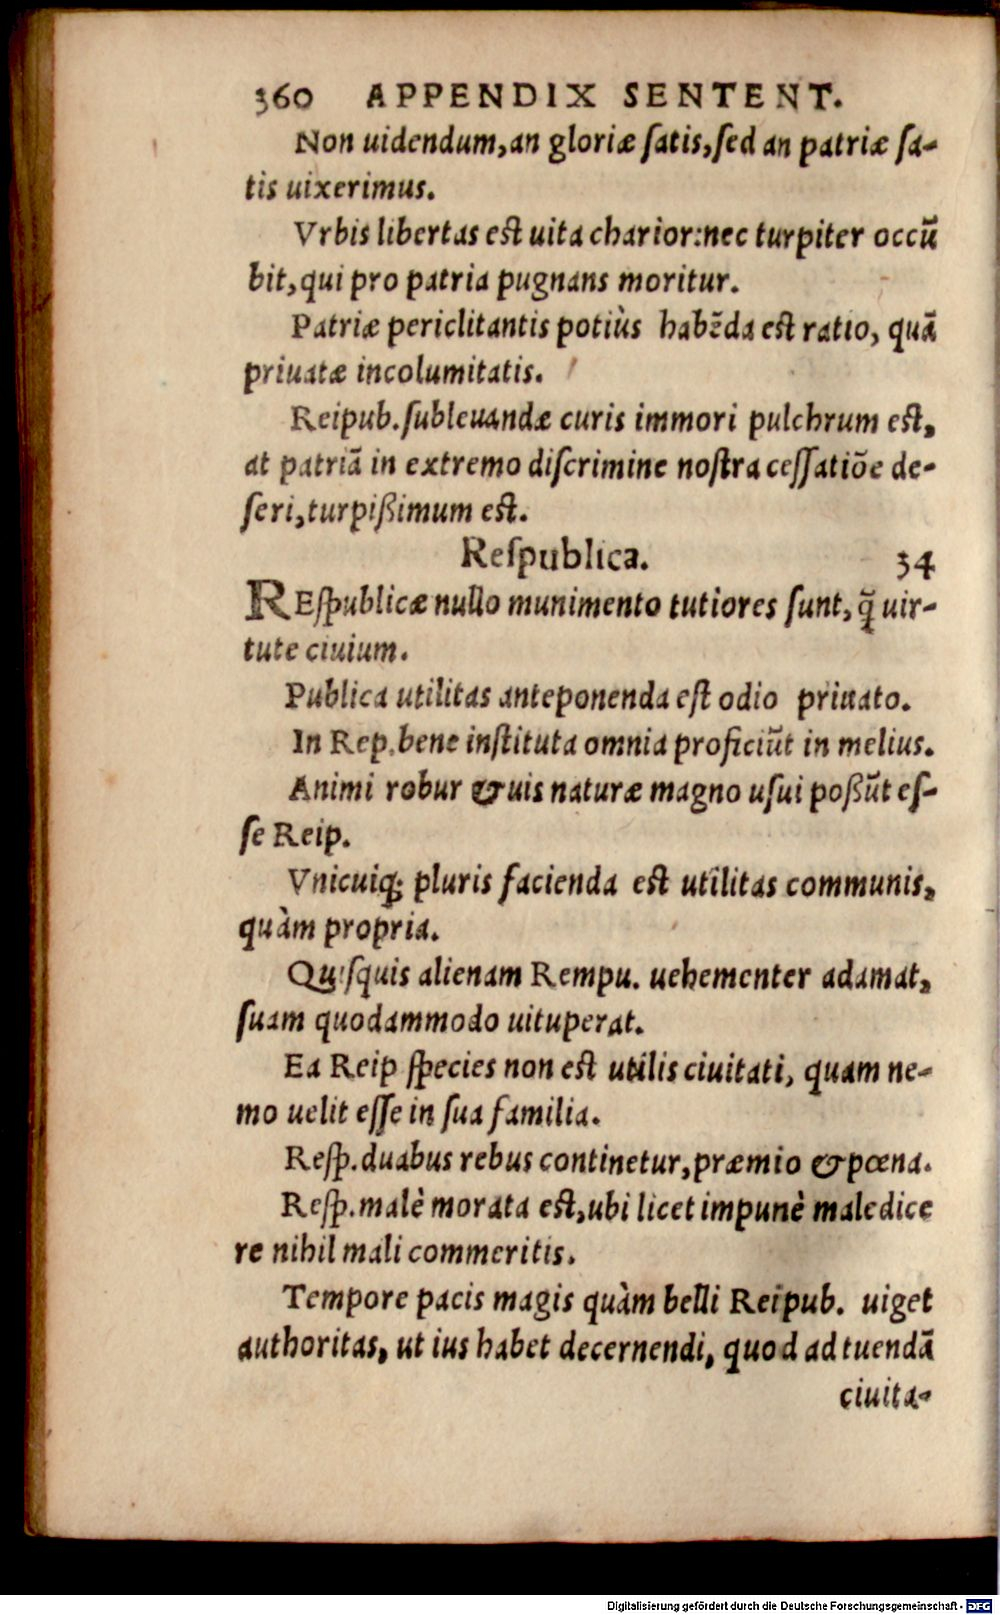 360 APPENDIX SENTENT.
Non uidendum, an gloriæ ſatis, ſed an patriæ ſa-
tis uixerimus.
Vrbis libertas eſt uita charior: nec turpiter occũ
bit, qui pro patria pugnans moritur.
Patriæ periclitantis potiùs habẽda eſt ratio, quã
priuatæ incolumitatis.
Reipub. ſubleuandæ curis immori pulchrum eſt,
at patriã in extremo diſcrimine noſtra ceſſatiõe de-
ſeri, turpißimum eſt.
Reſpublica. 34
REſpublicæ nullo munimento tutiores ſunt, q̃ uir-
tute ciuium.
Publica utilitas anteponenda eſt odio priuato.
In Rep. bene inſtituta omnia proficiũt in melius.
Animi robur & uis naturæ magno uſui poßũt eſ-
ſe Reip.
Vnicuiq; pluris facienda eſt utilitas communis,
quàm propria.
Quiſquis alienam Rempu. uehementer adamat,
ſuam quodammodo uituperat.
Ea Reip ſpecies non eſt utilis ciuitati, quam ne-
mo uelit eſſe in ſua familia.
Reſp. duabus rebus continetur, præmio & pœna.
Reſp. malè morata eſt, ubi licet impunè maledice
re nihil mali commeritis.
Tempore pacis magis quàm belli Reipub. uiget
authoritas, ut ius habet decernendi, quod ad tuendã
ciuita-
Digitalisierung gefördert durch die Deutsche Forschungsgemeinschaft - DFG